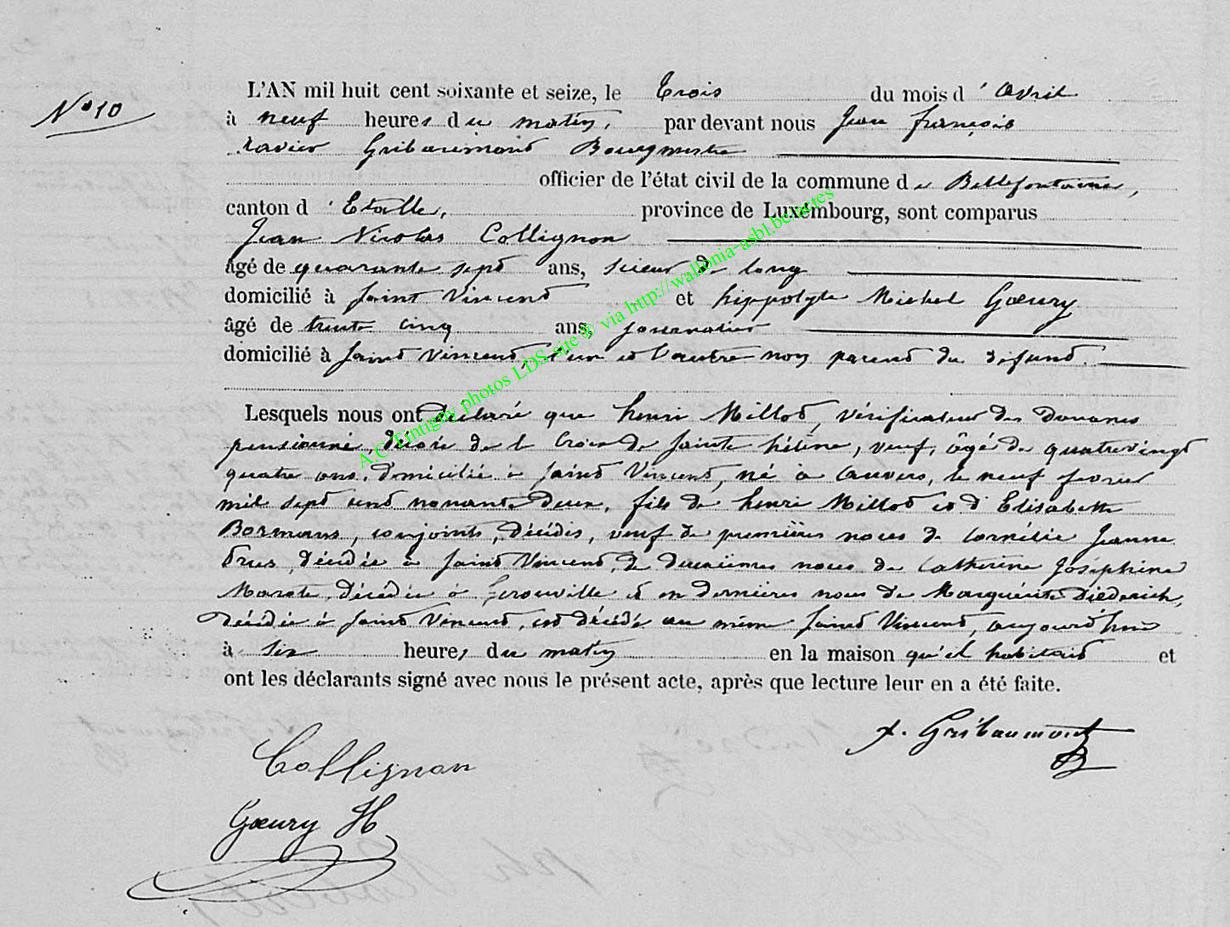 N° 10
L'AN mil huit cent soixante et seize, le Trois du mois d'Avril
à neuf heures du matin, par devant nous Jean françois
Xavier Gribaumont Bourgmestre
officier de l'état civil de la commune de Bellefontaine,
canton d'Etalle, province de Luxembourg, sont comparus
Jean Nicolas Collignon
âgé de quarante sept ans, scieur de long
domicilié à Saint Vincent et hippolyte Michel Gœury
âgé de trente cinq ans, journalier
domicilié à Saint Vincent, l'un et l'autre non parent du défunt.
Lesquels nous ont déclaré que henri Millot, vérificateur des Douanes
pensionné, décoré de la Croix de Sainte hélène, veuf, âgé de quatrevingt
quatre ans, domicilié à Saint Vincent, né à Anvers, le neuf fevrier
mil sept cent nonante deux, fils de henri Millot et d'Elisabette
Bormans, conjoints, décédés, veuf de premières noces de Cornélie Jeanne
décédée à Saint Vincent, de deuxièmes noces de Catherine Josephine
Marote, décédée à Gerouville & en dernières noces de Marguérite Diederich,
décédée à Saint Vincent, est décédé au même Saint Vincent, aujourd'hui
à six heures du matin en la maison qu'il habitait et
ont les déclarants signé avec nous le présent acte, après que lecture leur en a été faite.
x. Gribaumont
Collignon
Gœury H
A.C. Tintigny photos LDS vue via http://wallonia-asbl.be/actes